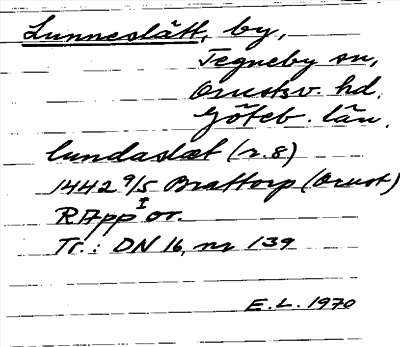 Lunneslätt, by,
Tegneby sn,
Orusts v. hd.
Göteb. län.
lundaslæt (r. 8)
1442 9/5 Brattorp (Orust)
RApp I or.
Tr.: DN 16, nr 139
E.L. 1970